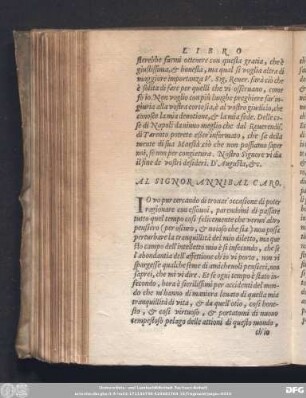 LIBRO
sterebbe farmi ottenere con questa gratia, che è
giustissima, & honesta, ma qual si voglia altra di
maggiore importanza V. Sig. Reuer. farà ciò che
è solita di fare per quelli che vi osseruano, come
fò io. Non voglio con più lunghe preghiere far in-
giuria alla vostra cortesia, & al vostro giudicio, che
conosce la mia deuotione, & la mia fede. Delle co-
se di Napoli daranno meglio che dal
di Taranto potrete esser informata, che sa della
mente di sua Maestà ciò che non possiamo saper
noi, se non per congiettura. Nostro Signore vi dia
il fine de vostri desideri. D'Augusta, &c.
AL SIGNOR ANNIBAL CARO.
IO vo pur cercando di trouar' occasione di poter
ragionare con essouoi, parendomi di passare
tutto quel tempo così felicemente che verun altro
pensiero (per osceno, & noioso che sia) non possa
perturbare la tranquillità del mio diletto, ma que
sto campo dell'intelletto mio è sì infecondo, che se
l'abondantia dell'affettione ch'io vi porto, non vi
spargesse qualche seme di amicheuoli pensieri, non
saprei, che mi vi dire. Et se ogni tempo è stato in-
fecondo, hora è sterilissimo per accidenti del mon-
do che m'hanno di maniera leuato di quella mia
tranquillità di vita, & da quell'otio, così hone-
sto, & così virtuoso, & portatomi di nuouo
tempestoso pelago delle attioni di questo mondo,
ch'io